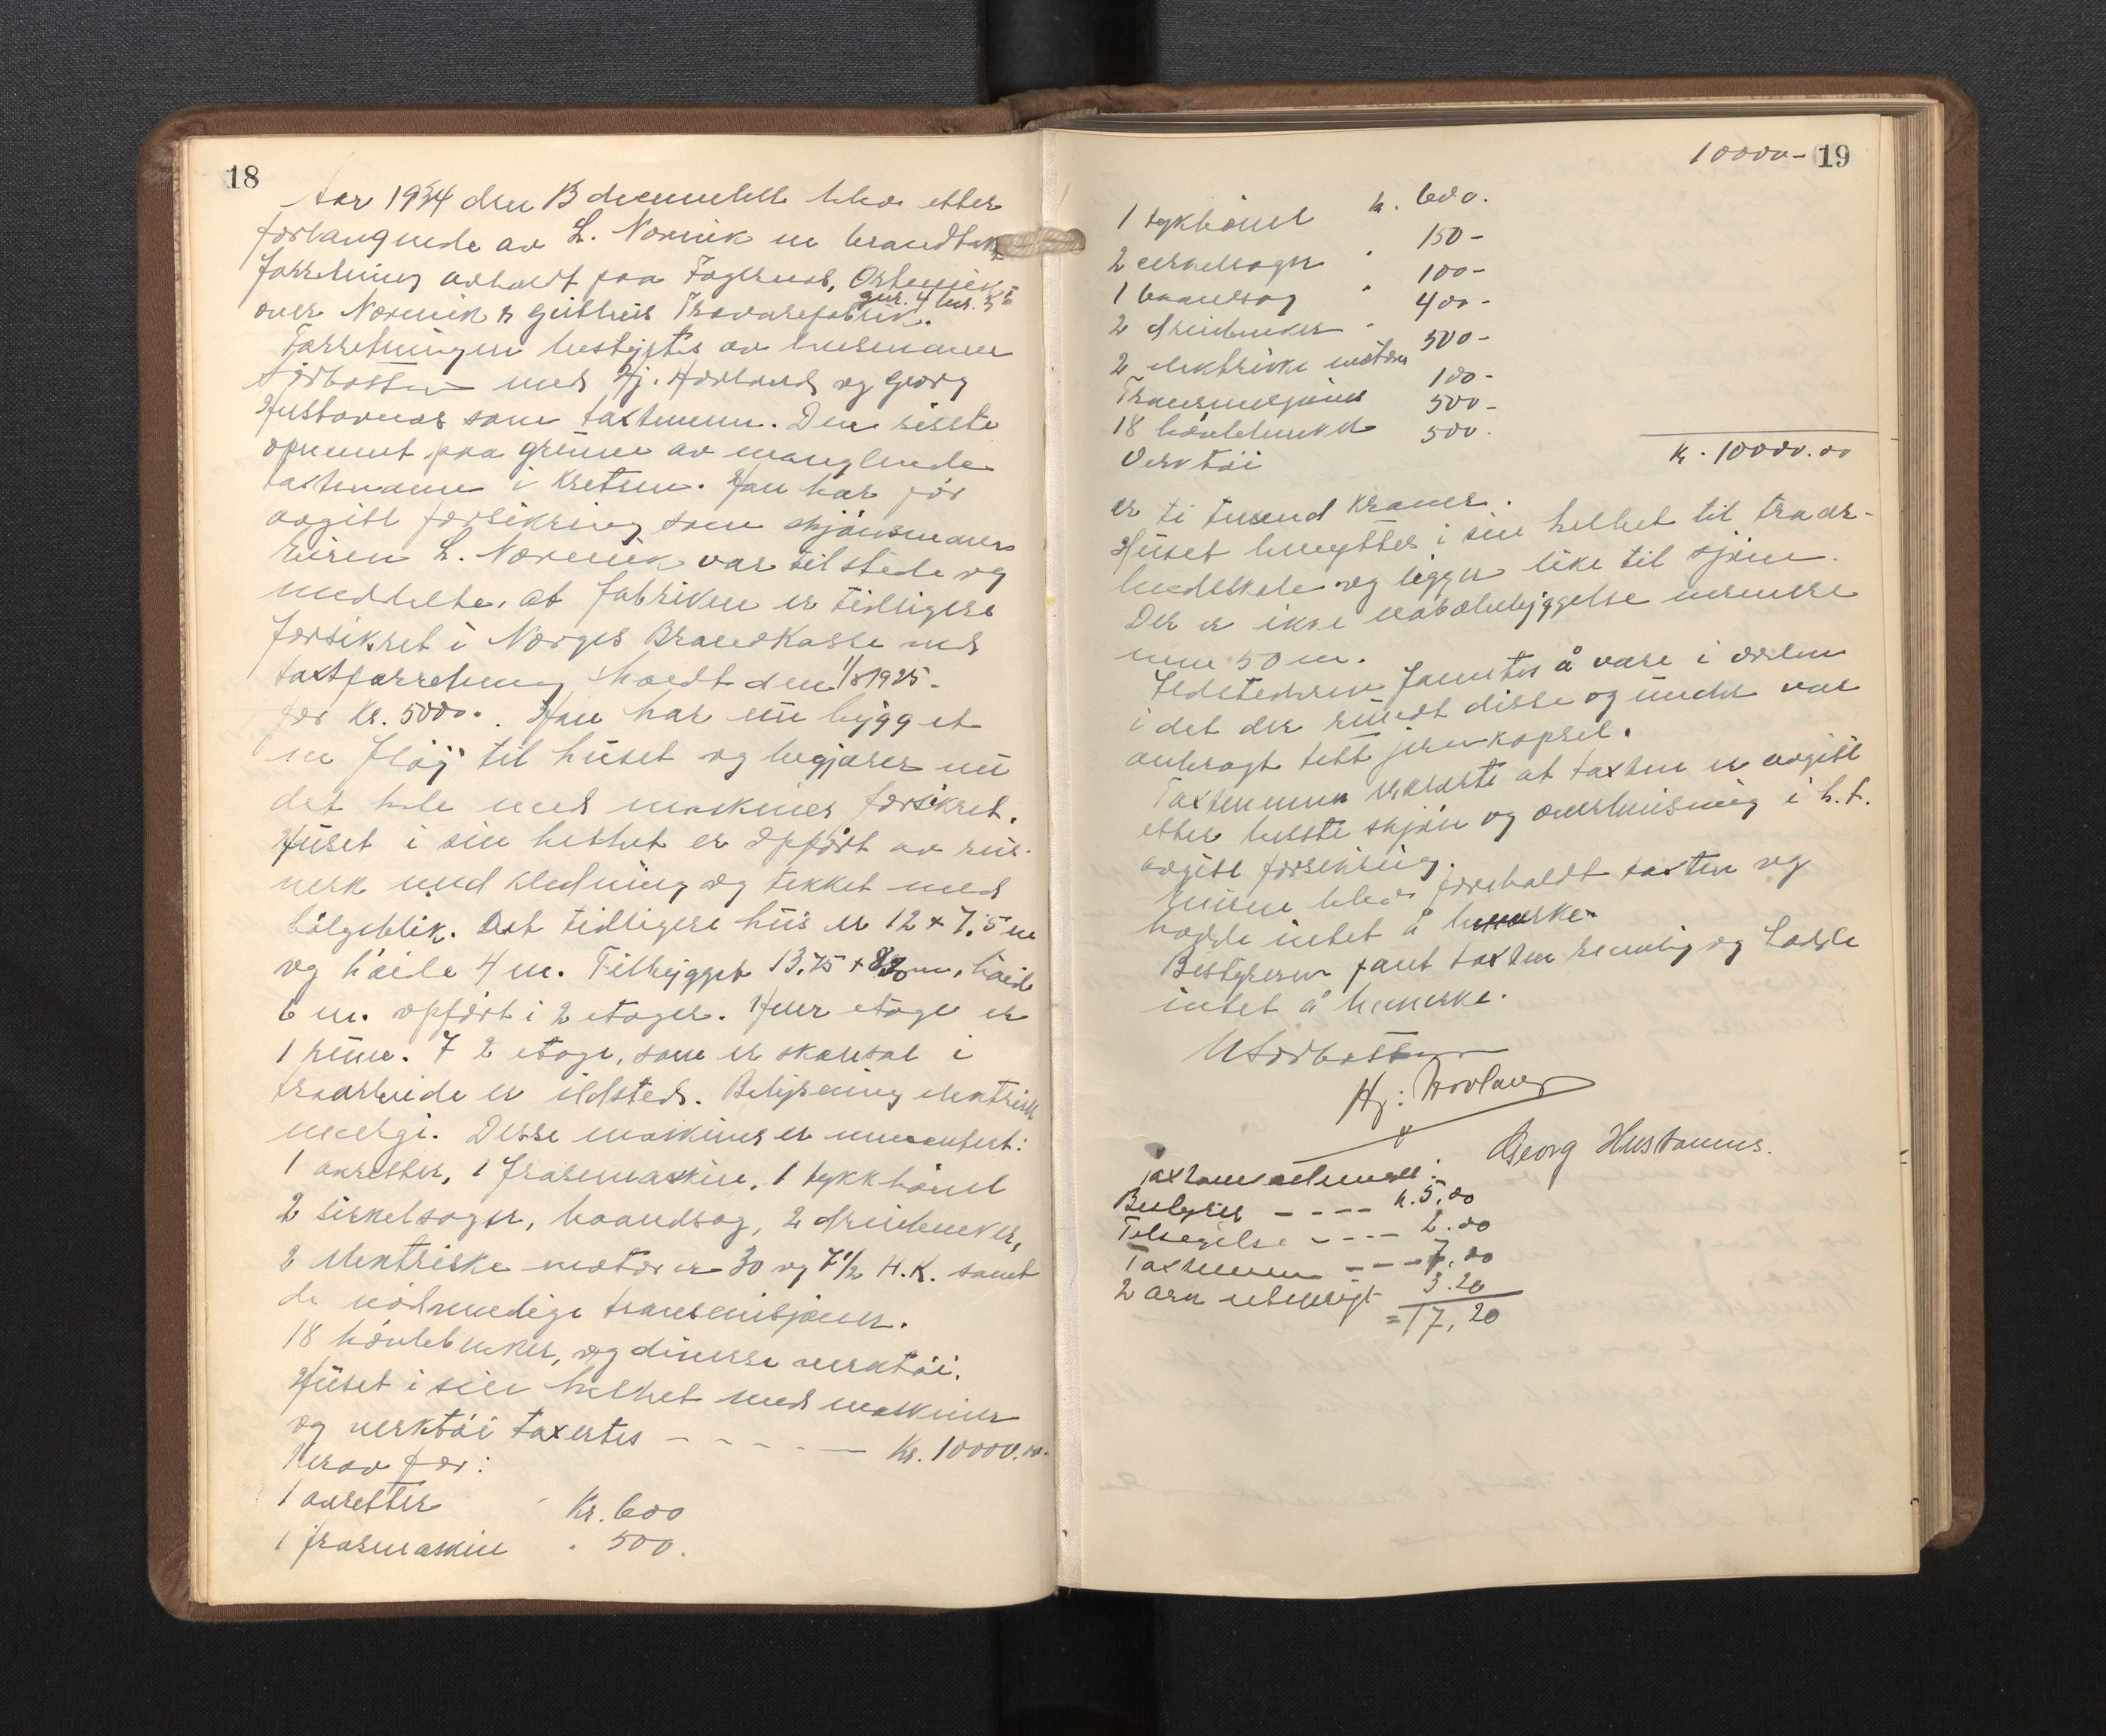 18
Aar 1934 den 13 december blev efter
forlangende av L. Nævnik en brandtakst
forretning avholdt paa Fagernes,
gnr. 4 bnr. 5
over Trævarefabrik.
Forretningen bestyrtes av lensmann
Sørbotten med Hj. Hovland og Georg
Hustavnes som taxtmenn. Den siste
opnevnt paa grunn av manglende
taxtmann i kretsen. Han har før
avgitt forsikring som skjønsmann
Eieren L. Nævnik var tilstede og
meddelte, at fabriken er tidligere
forsikret i Norges Brandkasse ved
taxtforretning holdt den 1/8 1925.
for Kr. 5000.. Han har nu bygget
en fløj til huset og begjærer nu
det hele med maskiner forsikret.
Huset i sin helhet er opført av reis-
verk med kledning og tekket med
bølgeblik. Det tidligere hus er 12 x 7,5 m
og høide 4 m. Tilbygget 13,75 + 8,30 m, høide
6 m. opført i 2 etager. Hver etage er
1 rum. I 2 etage, som er skolesal i
træarbeide er ildsted. Belysning elektrisk
energi. Disse maskiner er :
1 avretter, 1 fræsemaskin, 1 tykkhøvel
2 sirkelsager, baandsag, 2 dreiebenker,
2 elektriske motorer 30 og 7 1/2 H.K. samt
de nødvendige transmisjoner.
18 høvlebenker, og diverse verktøi.
Huset i sin helhet med maskiner
og verktøi taxertes - - - - - Kr. 10000.00.
Herav for:
1 avretter Kr. 600
1 fræsmaskin " 500.
10000- 19
1 tykhøvel k. 600.
2 cirkelsager " 150-
1 baandsag " 100-
2 dreiebenker " 400-
2 elektriske motorer 500-
Transmisjoner 100-
18 høvlebenker 500-
Verktøi 500.
k. 10000.00
er ti tusend kroner.
Huset benyttes i sin helhet til traar-
beidskole og ligger like til sjøen.
Der er ikke nabobebyggelse nærmere
enn 50 m.
Ildstederne fanntes å være i orden
i det der rundt disse og under var
anbragt tett jernkapsel.
Taxtmennene erklærte at taxten er avgitt
efter beste skjøn og overbevisning i h.t.
avgitt forsikring.
Eieren blev foreholdt taxten og
hadde intet å bemerke.
Bestyreren fant taxten rimelig og hadde
intet å bemerke.
Sørbotten
Hj: Hovland
Georg Hustavnes.
Bestyrer - - - - k. 5.00
Tilsigelse - - - - 2.00
Taxtmenn - - - 7.00
2 ark utskrift 3.20
= 17,20